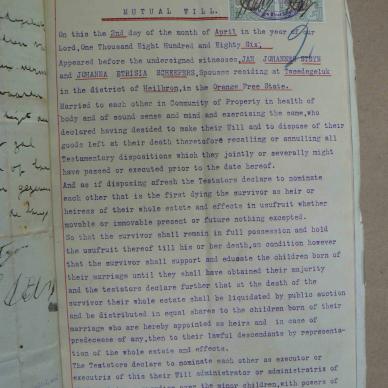 MUTUAL WILL.
On this the 2nd day of the month of April in the year of our
Lord, One Thousand Eight Hundred and Eighty Six,
Appeared before the undersigned witnesses, JAN JOHANNES STEYN
and JOHANNA ETHISIA SCHEEPERS, Spouses residing at Tweedegeluk
in the district of Heilbron, in the Orange Free State.
Married to each other in Community of Property in health of
body and of sound sense and mind and exercising the same, who
declared having decided to make their Will and to dispose of their
goods left at their death therefore recalling or annulling all
Testamentary dispositions which they jointly or severally might
have passed or executed prior to the date hereof.
And as if disposing afresh the Testators declare to nominate
each other that is the first dying the survivor as heir or
heiress of their whole estate and effects in usufruct whether
movable or immovable present or future nothing excepted.
So that the survivor shall remain in full possession and hold
the usufruct thereof till his or her death, on condition however
that the survivor shall support and educate the children born of
their marriage until they shall have obtained their majority
and the testators declare further that at the death of the
survivor their whole estate shall be liquidated by public auction
and be distributed in equal shares to the children born of their
marriage who are hereby appointed as heirs and in case of
predecease of any, then to their lawful descendants by representa-
tion of the whole estate and effects.
The Testators declare to nominate each other as executor or
executrix of this their Will administrator or administratrix of
over the minor children, with powers of